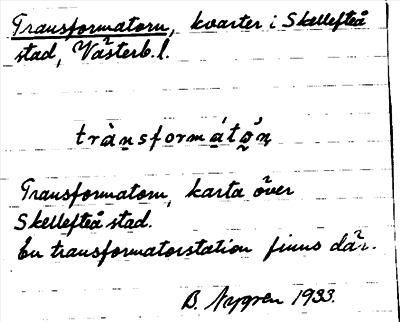 Transformatorn, kvarter i Skellefteå
stad, Västerb.l.
trànsformátơn
Transformatorn, karta över
Skellefteå stad.
En transformatorstation finns där.
B. Nygren 1933.